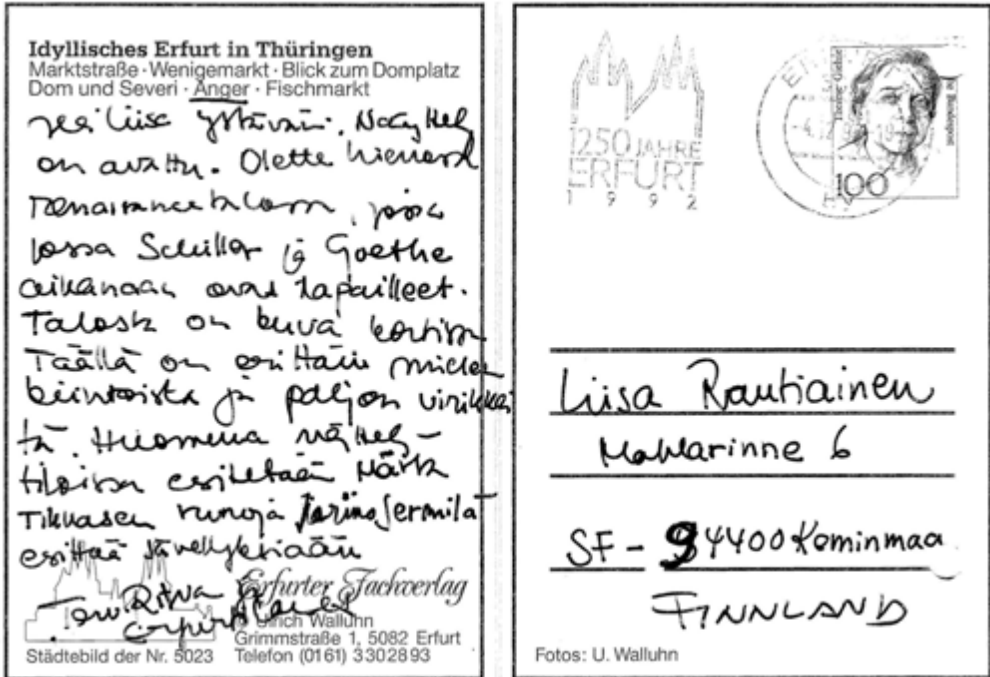 Idyllisches Erfurt in Thüringen
Marktstraße · Wenigemarkt · Blick zum Domplatz
Dom und Severi · Anger · Fischmarkt
Hei Liisa ystäväni. Näyttely
on avattu. Olette hienossa
renaissancetalossa, jossa
jossa Schiller ja Goethe
aikanaan ovat tapailleet.
Talosta on kuva kortissa
Täällä on erittäin mielen
kiintoista ja paljon virikkei
tä. Huomenna näyttely-
tiloissa esitetään Märta
Tikkasen runoja Jarmo Sermilä
esittää sävellyksiään
Ritva
Erfurter Fachverlag
Ulrich Walluhn
Grimmstraße 1, 5082 Erfurt
Städtebild der Nr. 5023 Telefon (0161) 3302893
1250 JAHRE
ERFURT
1992
100
Liisa Rautiainen
6
SF - 94400 Keminmaa
FINNLAND
Fotos: U. Walluhn